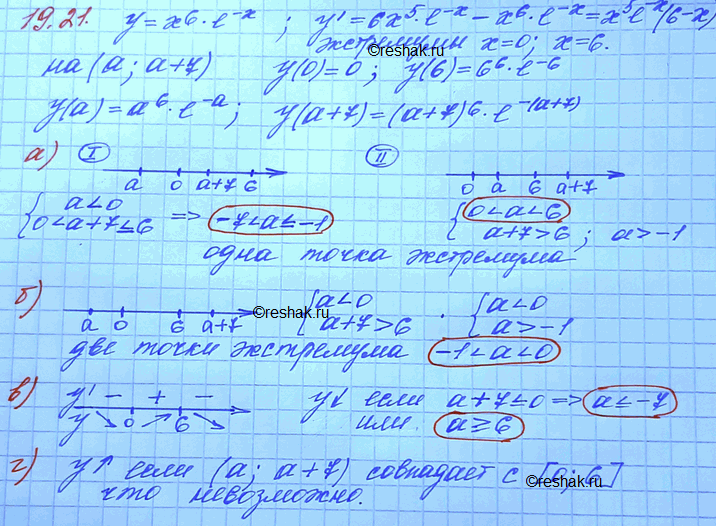 19.21. y = x⁶·e⁻ˣ ; y' = 6x⁵·e⁻ˣ - x⁶·e⁻ˣ = x⁵e⁻ˣ(6-x)
экстремумы x=0; x=6.
©reshak.ru
на (a; a+7) y(0)=0 ; y(6)=6⁶·e⁻⁶
y(a)=a⁶·e⁻ᵃ; y(a+7)=(a+7)⁶·e^-(a+7)
а) I II
a 0 a+7 6 0 a 6 a+7
{ a<0 0<a+7≤6 => -7<a≤-1 { 0<a<6 a+7>6 ; a>-1
одна точка экстремума
б) a 0 6 a+7 ©reshak.ru { a<0 a+7>6 . { a<0 a>-1
две точки экстремума -1<a<0
в) y' - + - y↓ если a+7≤0 => a≤-7
y ↘ 0 ↗ 6 ↘ или a≥6
г) y↑ если (a; a+7) совпадает с [0;6]
©reshak.ru
что невозможно.